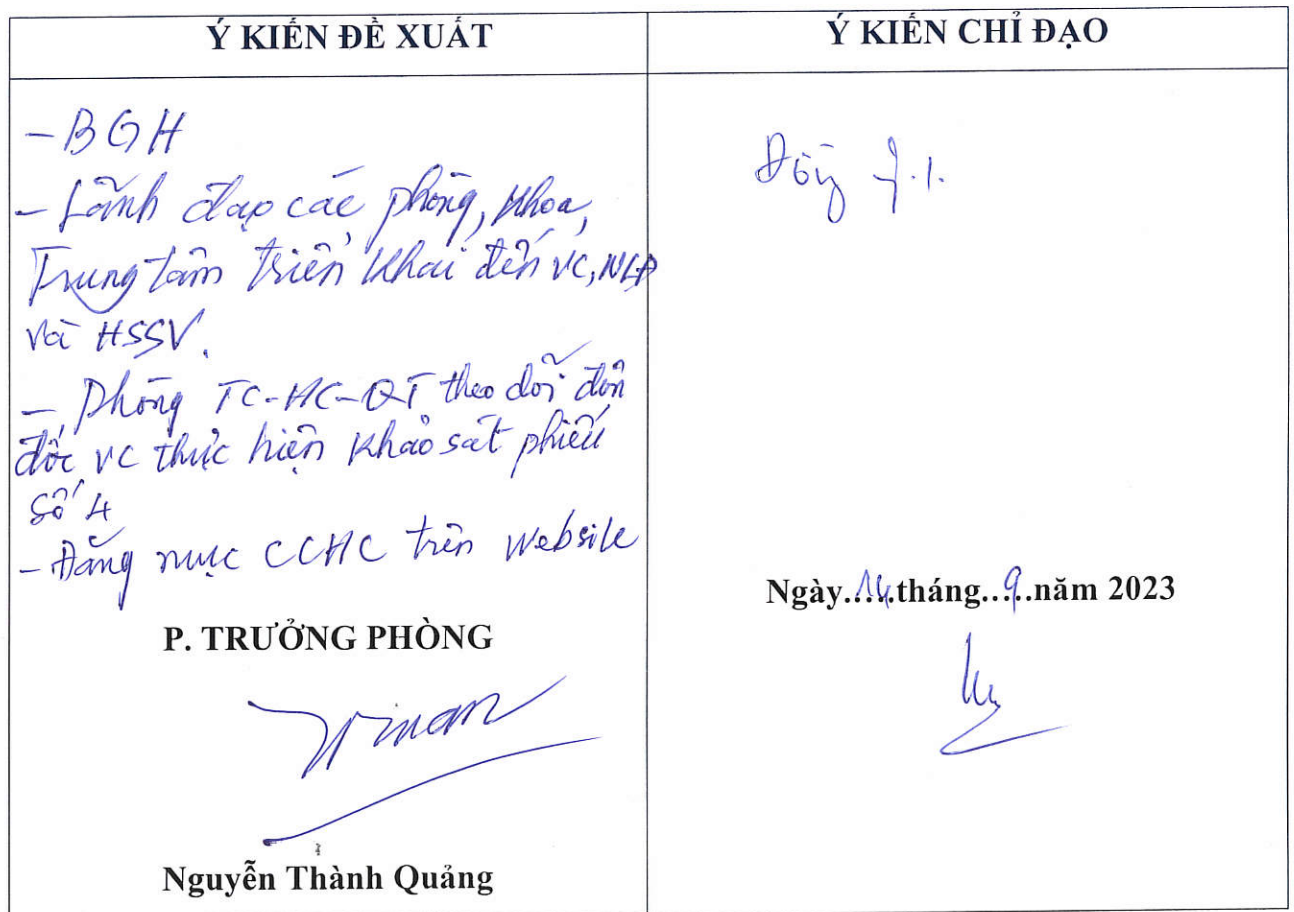 Ý KIẾN ĐỀ XUẤT
- BGH
- Lãnh đạo các phòng, khoa,
Trung tâm triển khai đến VC, NLĐ
và HSSV.
- Phòng TC-HC-QT theo dõi đôn
đốc VC thực hiện khảo sát phiếu
số 4
- Đăng mục CCHC trên Website
P. TRƯỞNG PHÒNG
Nguyễn Thành Quảng
Ý KIẾN CHỈ ĐẠO
Đồng ý.
Ngày..14..tháng...9..năm 2023